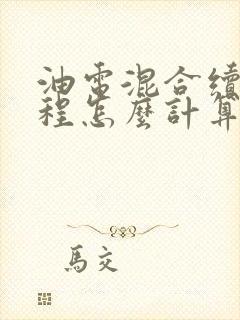 油電混合續
程怎麼計算
馬交